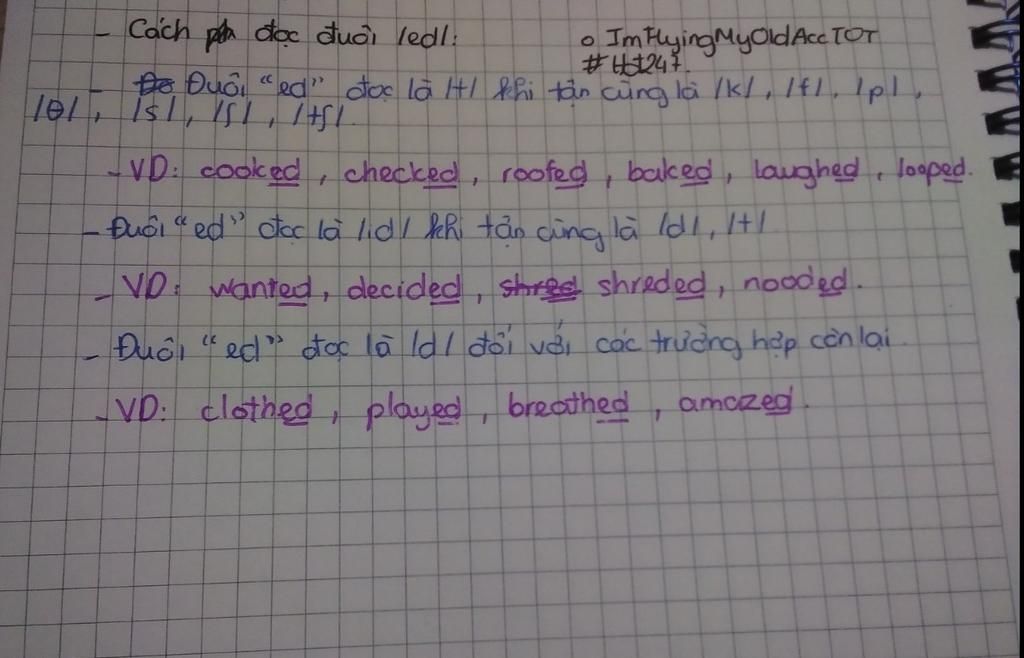 - Cách đọc đuôi /ed/:
o ImFlyingMyOldAccTOT
#tbt247
- Đuôi "ed" đọc là /t/ khi tận cùng là /k/, /f/, /p/,
/θ/, /s/, /ʃ/, /tʃ/.
- VD: cooked, checked, roofed, baked, laughed, looped.
- Đuôi "ed" đọc là /id/ khi tận cùng là /d/, /t/
- VD: wanted, decided, shreded, nooded.
- Đuôi "ed" đọc là /d/ đối với các trường hợp còn lại.
- VD: clothed, played, breathed, amazed.